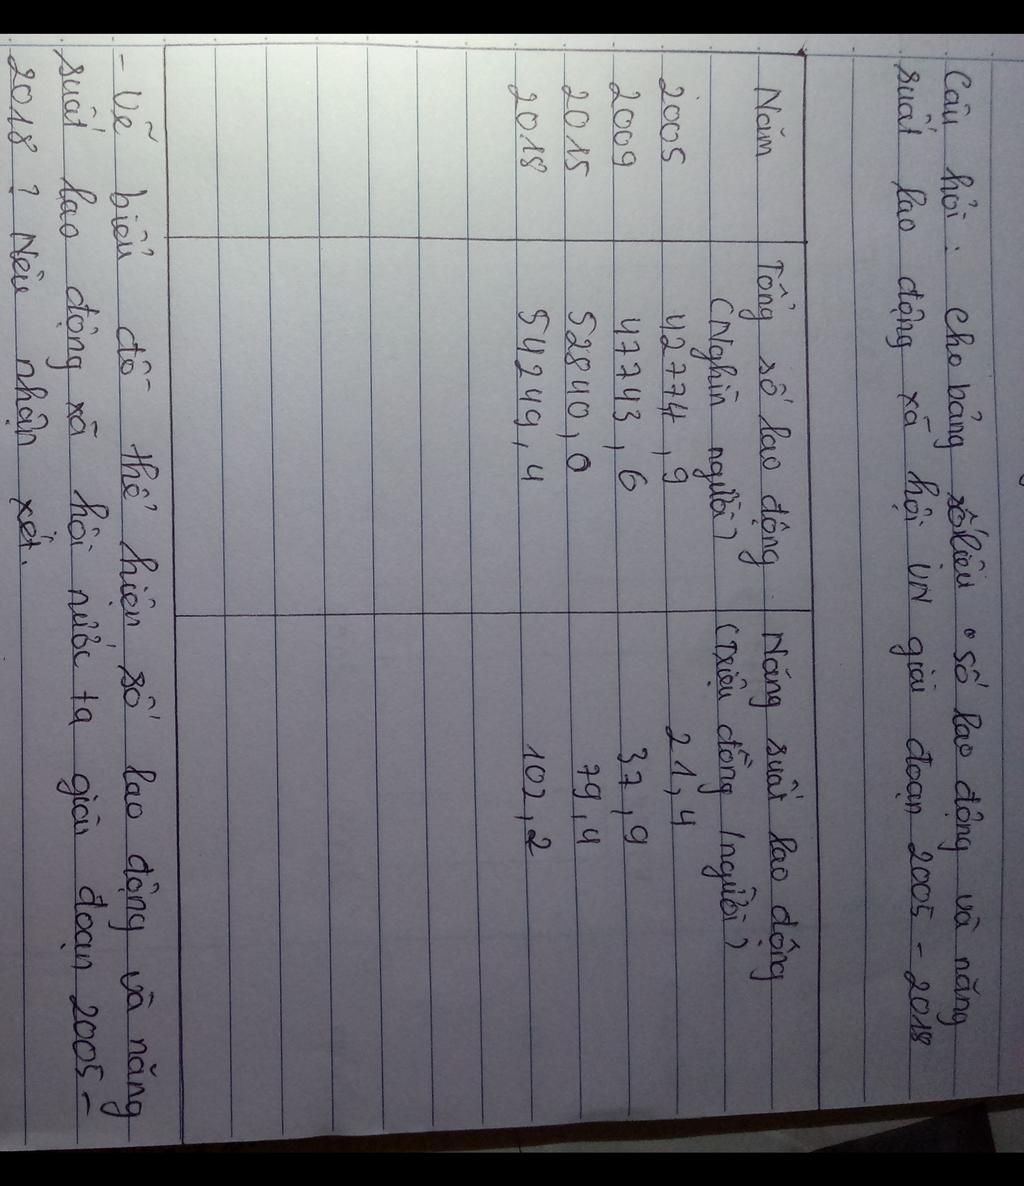 Câu hỏi : Cho bảng số liệu " Số lao động và năng
suất lao động xã hội VN giai đoạn 2005 - 2018
Năm Tổng số lao động Năng suất lao động
(Nghìn người) (Triệu đồng / người)
2005 42774,9 21,4
2009 47743,6 37,9
2015 52840,0 79,4
2018 54249,4 102,2
- Vẽ biểu đồ thể hiện số lao động và năng
suất lao động xã hội nước ta giai đoạn 2005 -
2018 ? Nêu nhận xét.